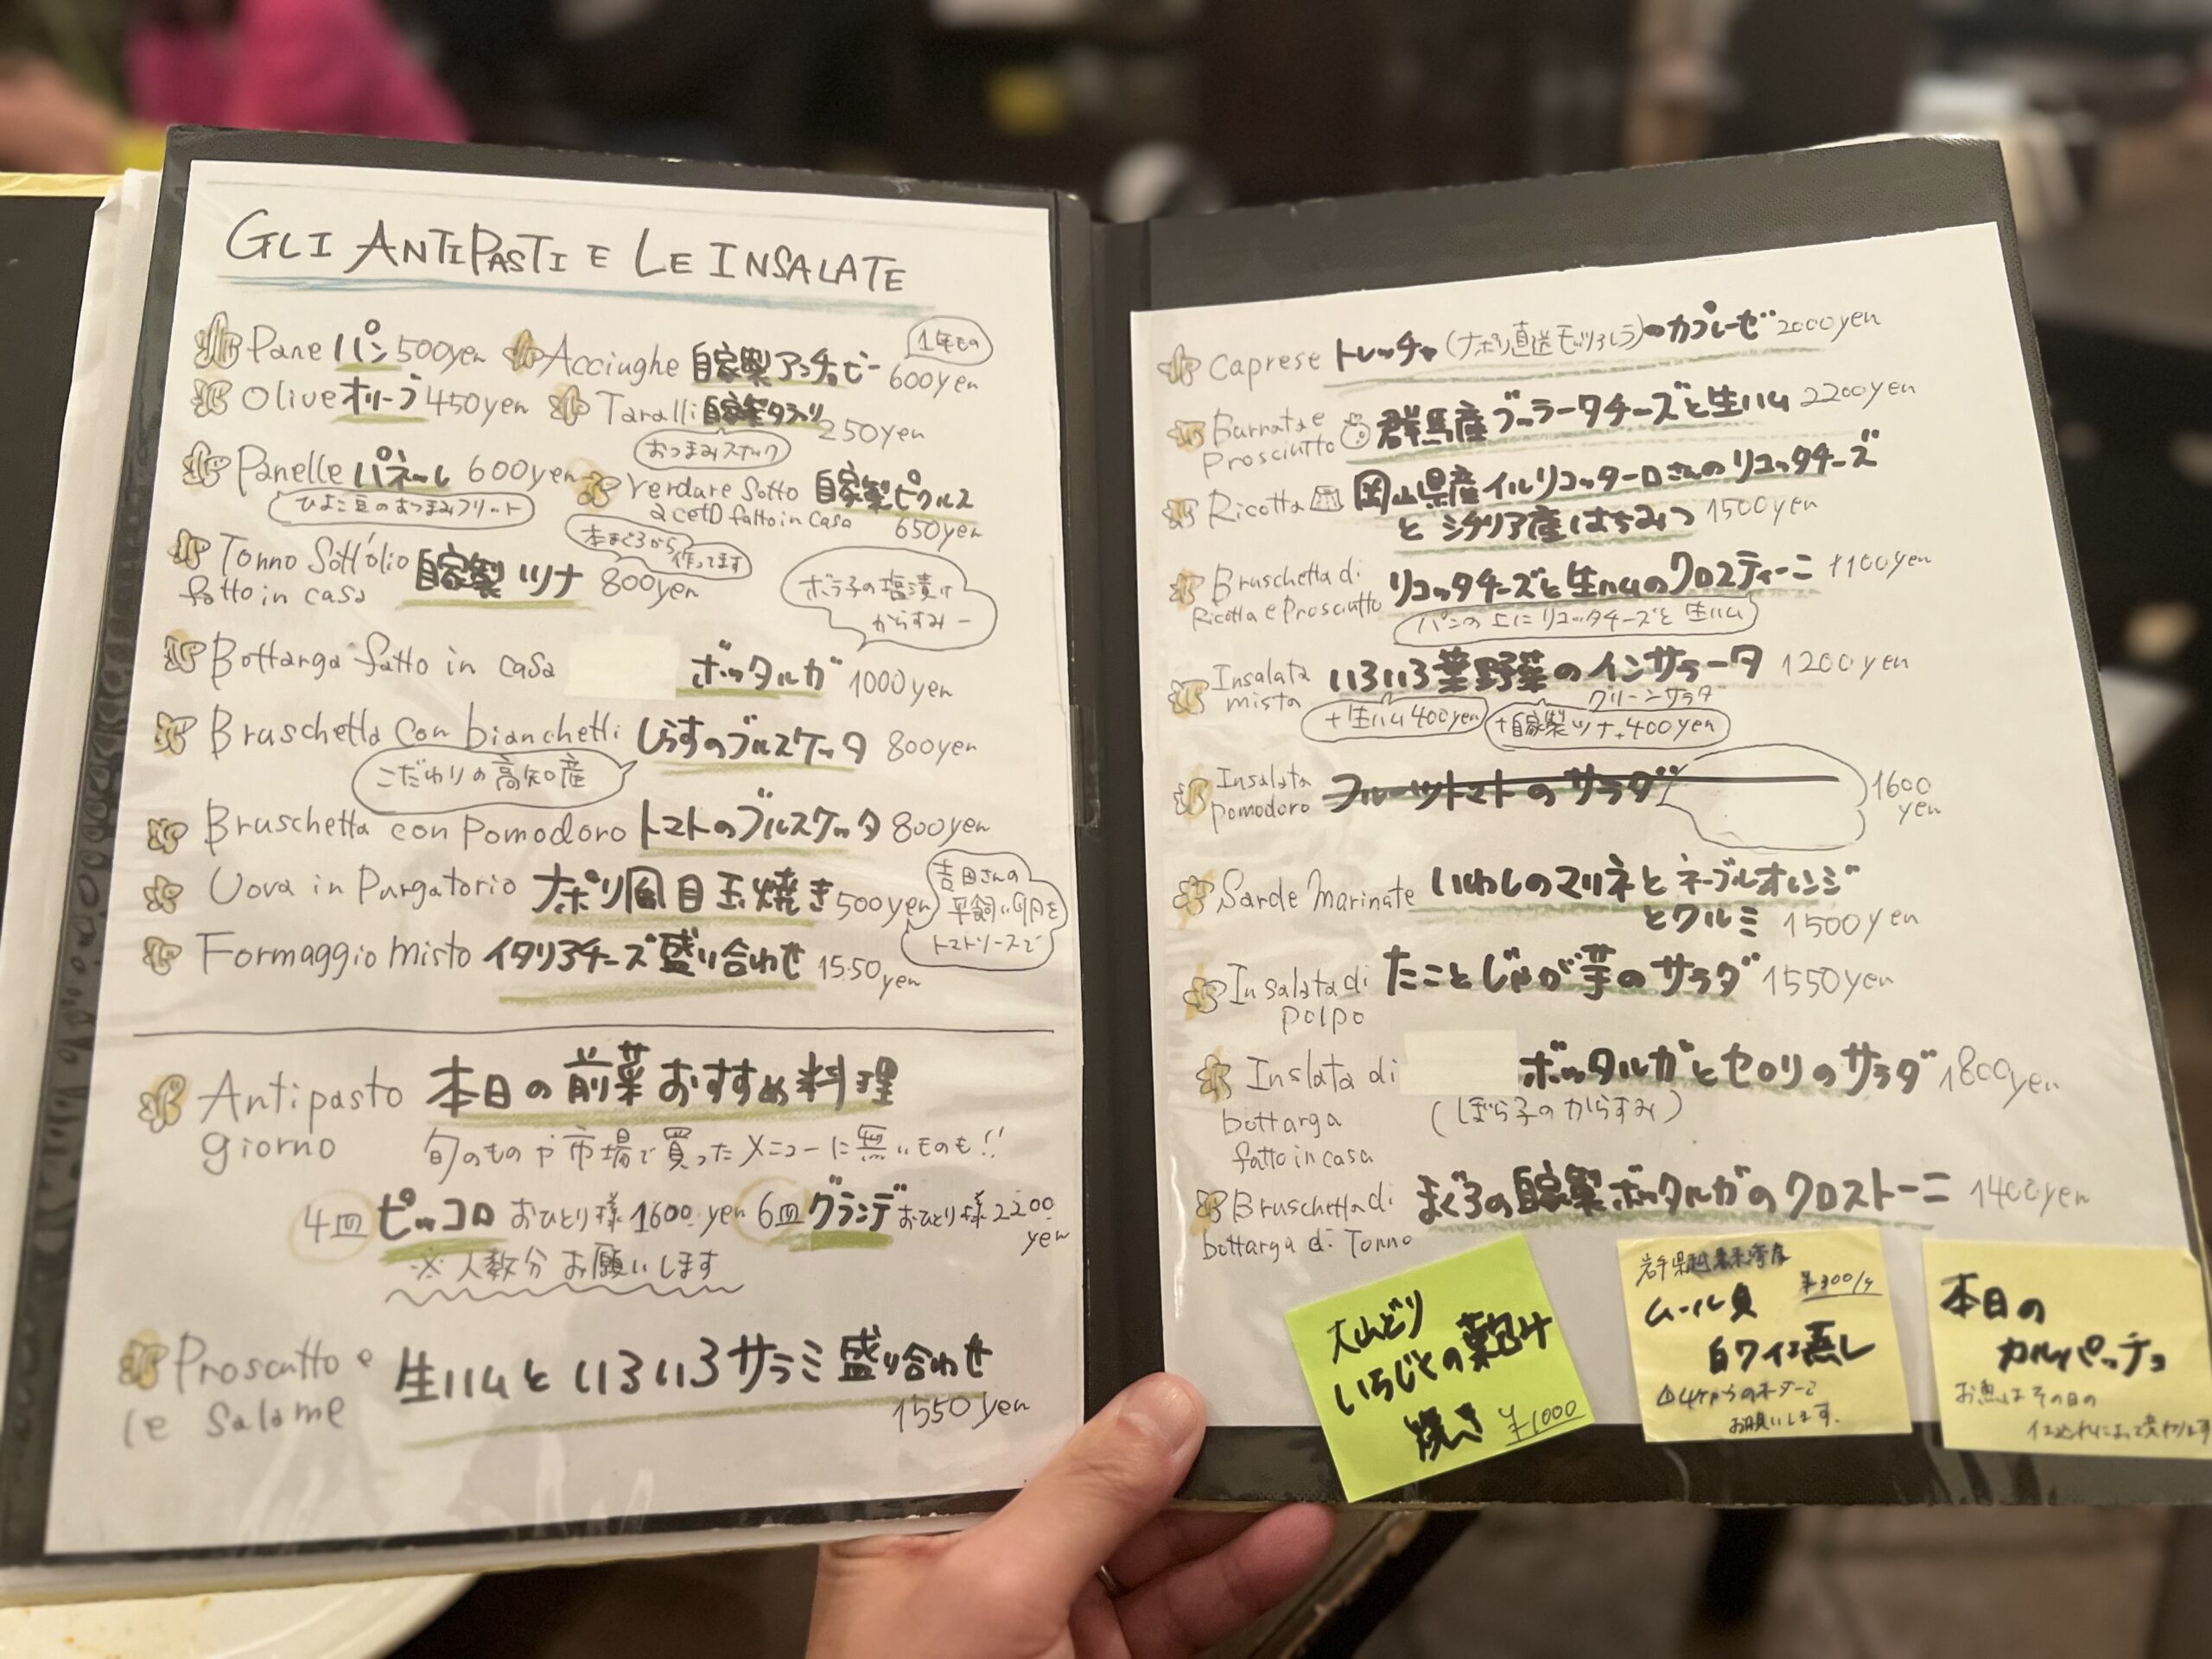 GLI ANTIPASTI E LE INSALATE
Pane パン 500yen
Acciughe 自家製アンチョビー 600yen
1年もの
Olive オリーブ 450yen
Taralli 自家製タラッリ 250yen
おつまみスナック
Panelle パネーレ 600yen
ひよこ豆のおつまみフリット
Verdure Sotto 自家製ピクルス
acetO fatto in casa 650yen
Tonno Sott'olio 自家製ツナ 800yen
fatto in casa
本まぐろから作ってます
Bottarga fatto in casa ボッタルガ 1000yen
ボラ子の塩漬け
からすみー
Bruschetta con bianchetti しらすのブルスケッタ 800yen
こだわりの高知産
Bruschetta con Pomodoro トマトのブルスケッタ 800yen
Uova in Purgatorio ナポリ風目玉焼き 500yen
吉田さんの
平飼い卵を
トマトソースで
Formaggio Misto イタリアチーズ盛り合わせ 1550yen
Antipasto 本日の前菜おすすめ料理
giorno 旬のものや市場で買ったメニューに無いものも!!
4皿 ピッコロ おひとり様1600yen 6皿 グランデ おひとり様2200yen
※人数分お願いします
Proscutto e 生ハムといろいろサラミ盛り合わせ
le Salame 1550yen
Caprese トレッチャ(ナポリ直送モッツァレラ)のカプレーゼ 2000yen
Burrata e
Prosciutto 群馬産ブッラータチーズと生ハム 2200yen
Ricotta 岡山県産イルリコッターロさんのリコッタチーズ
とシチリア産はちみつ 1500yen
Bruschetta di
Ricotta e Prosciutto リコッタチーズと生ハムのクロスティーニ 1100yen
パンの上にリコッタチーズと生ハム
Insalata
mista いろいろ葉野菜のインサラータ 1200yen
グリーンサラダ
+生ハム400yen
+自家製ツナ+400yen
Insalata
pomodoro フルーツトマトのサラダ 1600
yen
Sarde Marinate いわしのマリネとネーブルオレンジ
とクルミ 1500yen
Insalata di
polpo たことじゃが芋のサラダ 1550yen
Inslata di ボッタルガとセロリのサラダ 1800yen
bottarga (ぼら子のからすみ)
fatto in casa
Bruschetta di まぐろの自家製ボッタルガのクロストーニ 1400yen
bottarga di Tonno
大山どり
いちじくの葉包み
焼き ¥1000
岩手県越喜来湾産
ムール貝 ¥300/ケ
白ワイン蒸し
△4ケからのオーダーで
お願いします.
本日の
カルパッチョ
お魚はその日の
仕入れによって変わります